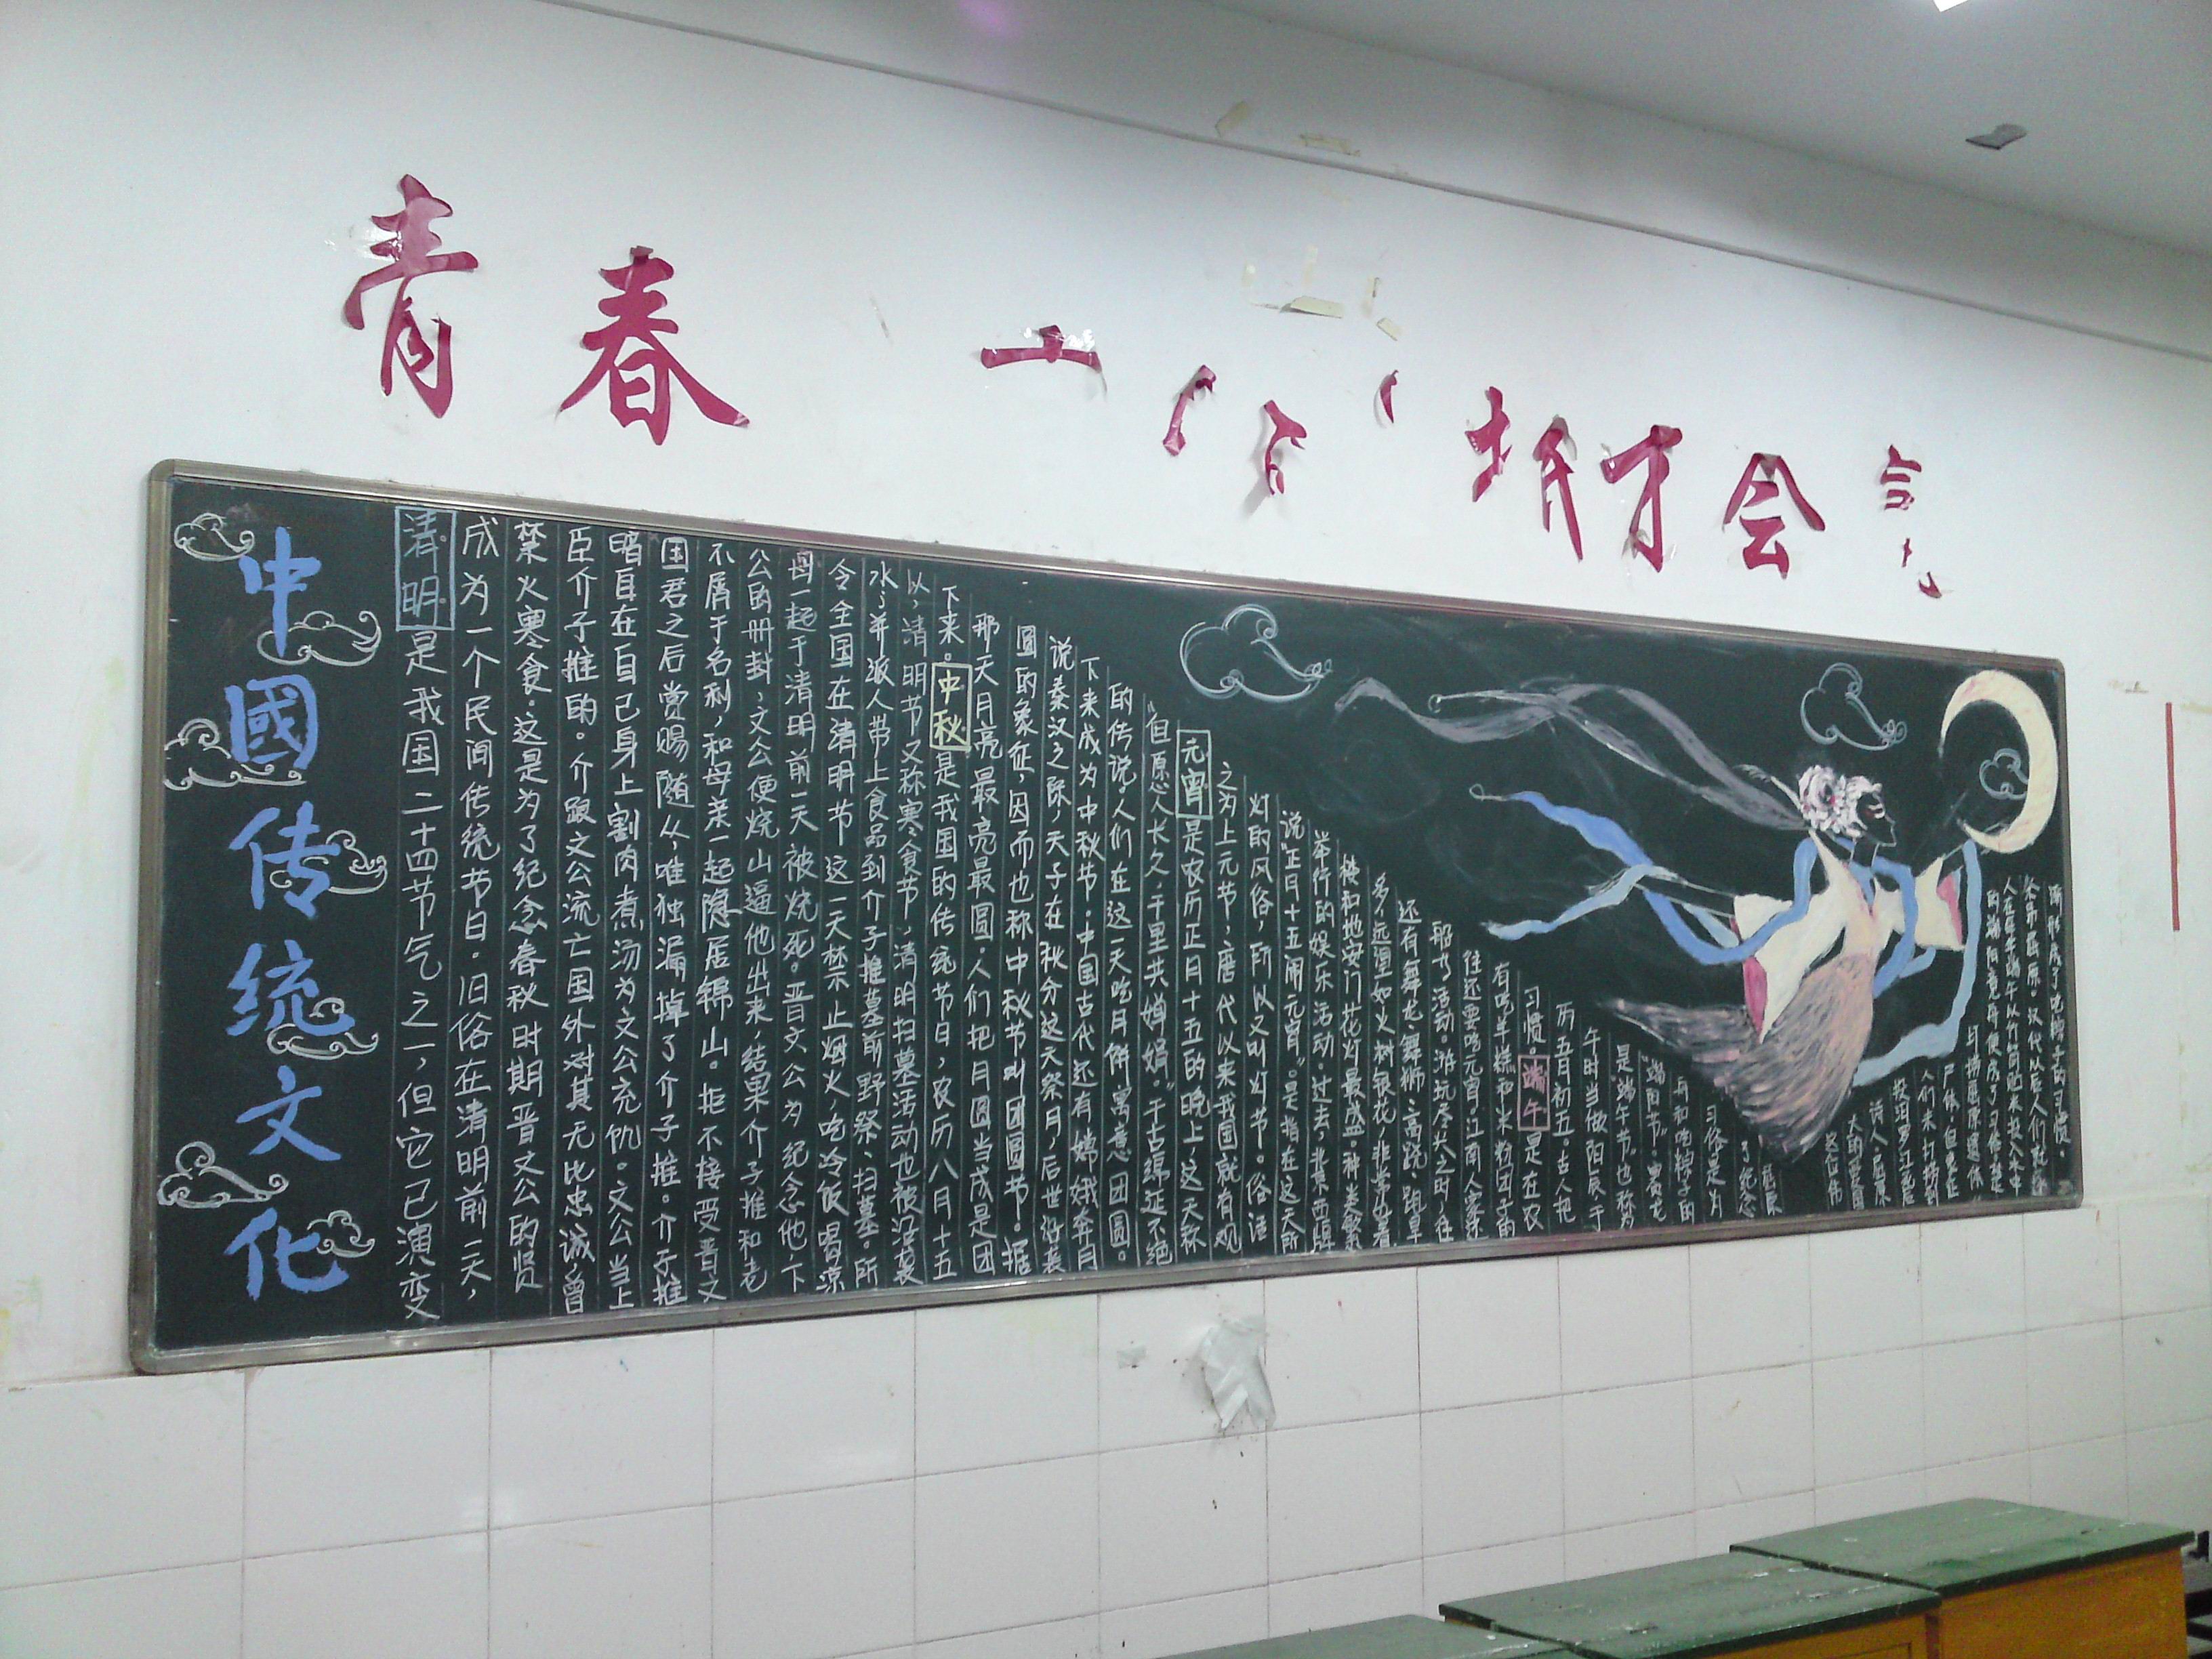 青春
才会
中國传统文化
清明是我国二十四节气之一，但它已演变
成为一个民间传统节日。旧俗在清明前一天，
禁火寒食。这是为了纪念春秋时期晋文公的贤
臣介子推的。介跟文公流亡国外对其无比忠诚，曾
暗自在自己身上割肉煮汤为文公充饥。文公当上
国君之后赏赐随从，唯独漏掉了介子推。介子推
不屑于名利，和母亲一起隐居锦山。拒不接受晋文
公的册封，文公便烧山逼他出来，结果介子推和老
母一起于清明前一天被烧死。晋文公为纪念他下
令全国在清明节这一天禁止烟火吃冷饭喝凉
水，并派人带上食品到介子推墓前野祭、扫墓。所
以，清明节又称寒食节，清明扫墓活动也被沿袭
下来。中秋是我国的传统节日，农历八月十五
那天月亮最亮最圆。人们把月圆当成是团
圆的象征，因而也称中秋节叫团圆节。据
说秦汉之际，天子在秋分这天祭月，后世沿袭
下来成为中秋节；中国古代还有嫦娥奔月
的传说，人们在这一天吃月饼寓意团圆。
“但愿人长久，千里共婵娟。”千古绵延不绝
元宵是农历正月十五的晚上，这天称
之为上元节，唐代以来我国就有观
灯的风俗，所以又叫灯节。俗话
说“正月十五闹元宵”。是指在这天所
举行的娱乐活动。过去，北京西
和地安门花灯最盛。种类繁
多，远望如火树银花，非常好看
还有舞龙、舞狮、高跷、跑旱
船等活动。游玩尽兴之时，往
往还要吃元宵。江南人家还
有吃年糕和米粉团子的
习惯。端午是在农
历五月初五。古人把
午时当做阳辰于
是端午节。也称为
“端阳节”。赛龙
舟和吃粽子的
习俗是为
了纪念
屈原
这位伟
大的爱国
诗人。屈原
投汨罗江死后
人们来打捞
尸体，但
打捞屈原遗体
人在每年端午以竹筒贮米投入水中
祭吊屈原。汉代以后人们
渐形成了吃粽子的习惯。